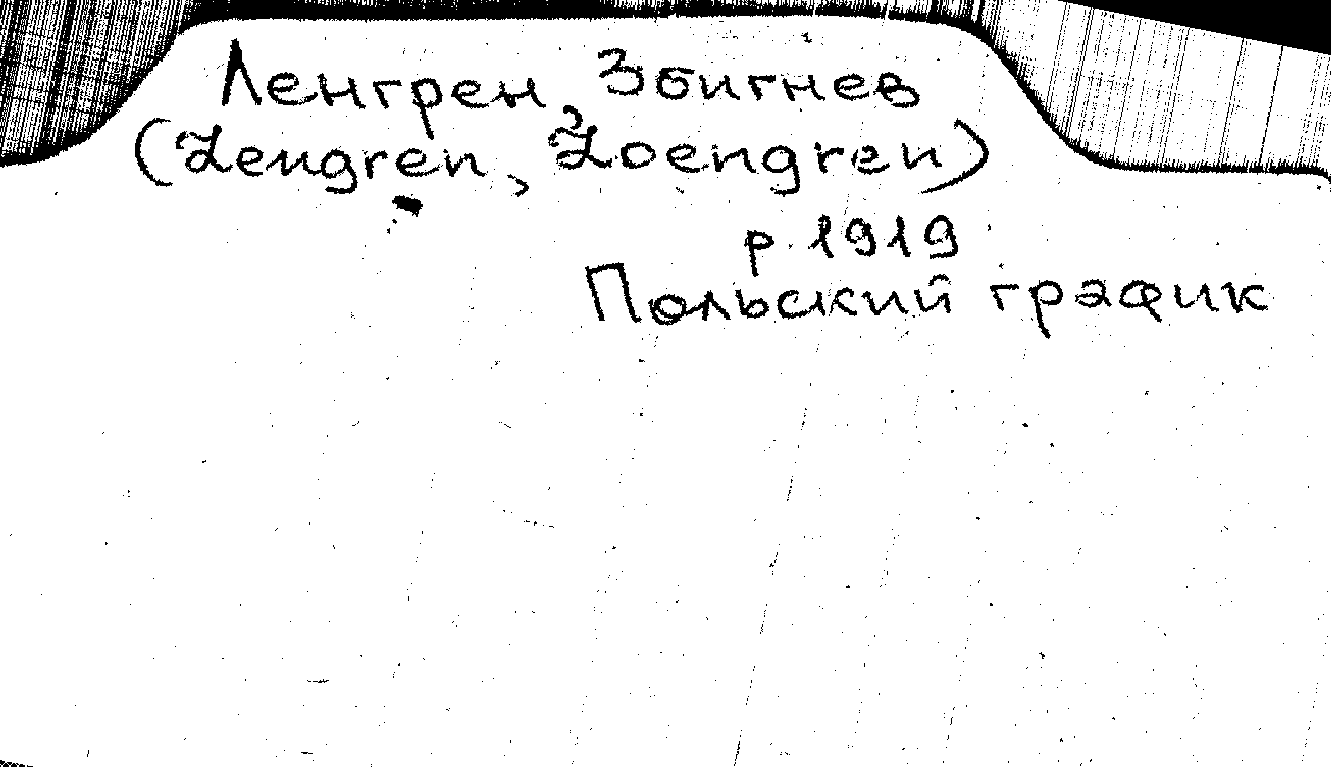 Ленгрен, Збигнев
(Lengren, Loengren)
р. 1919
Польский график